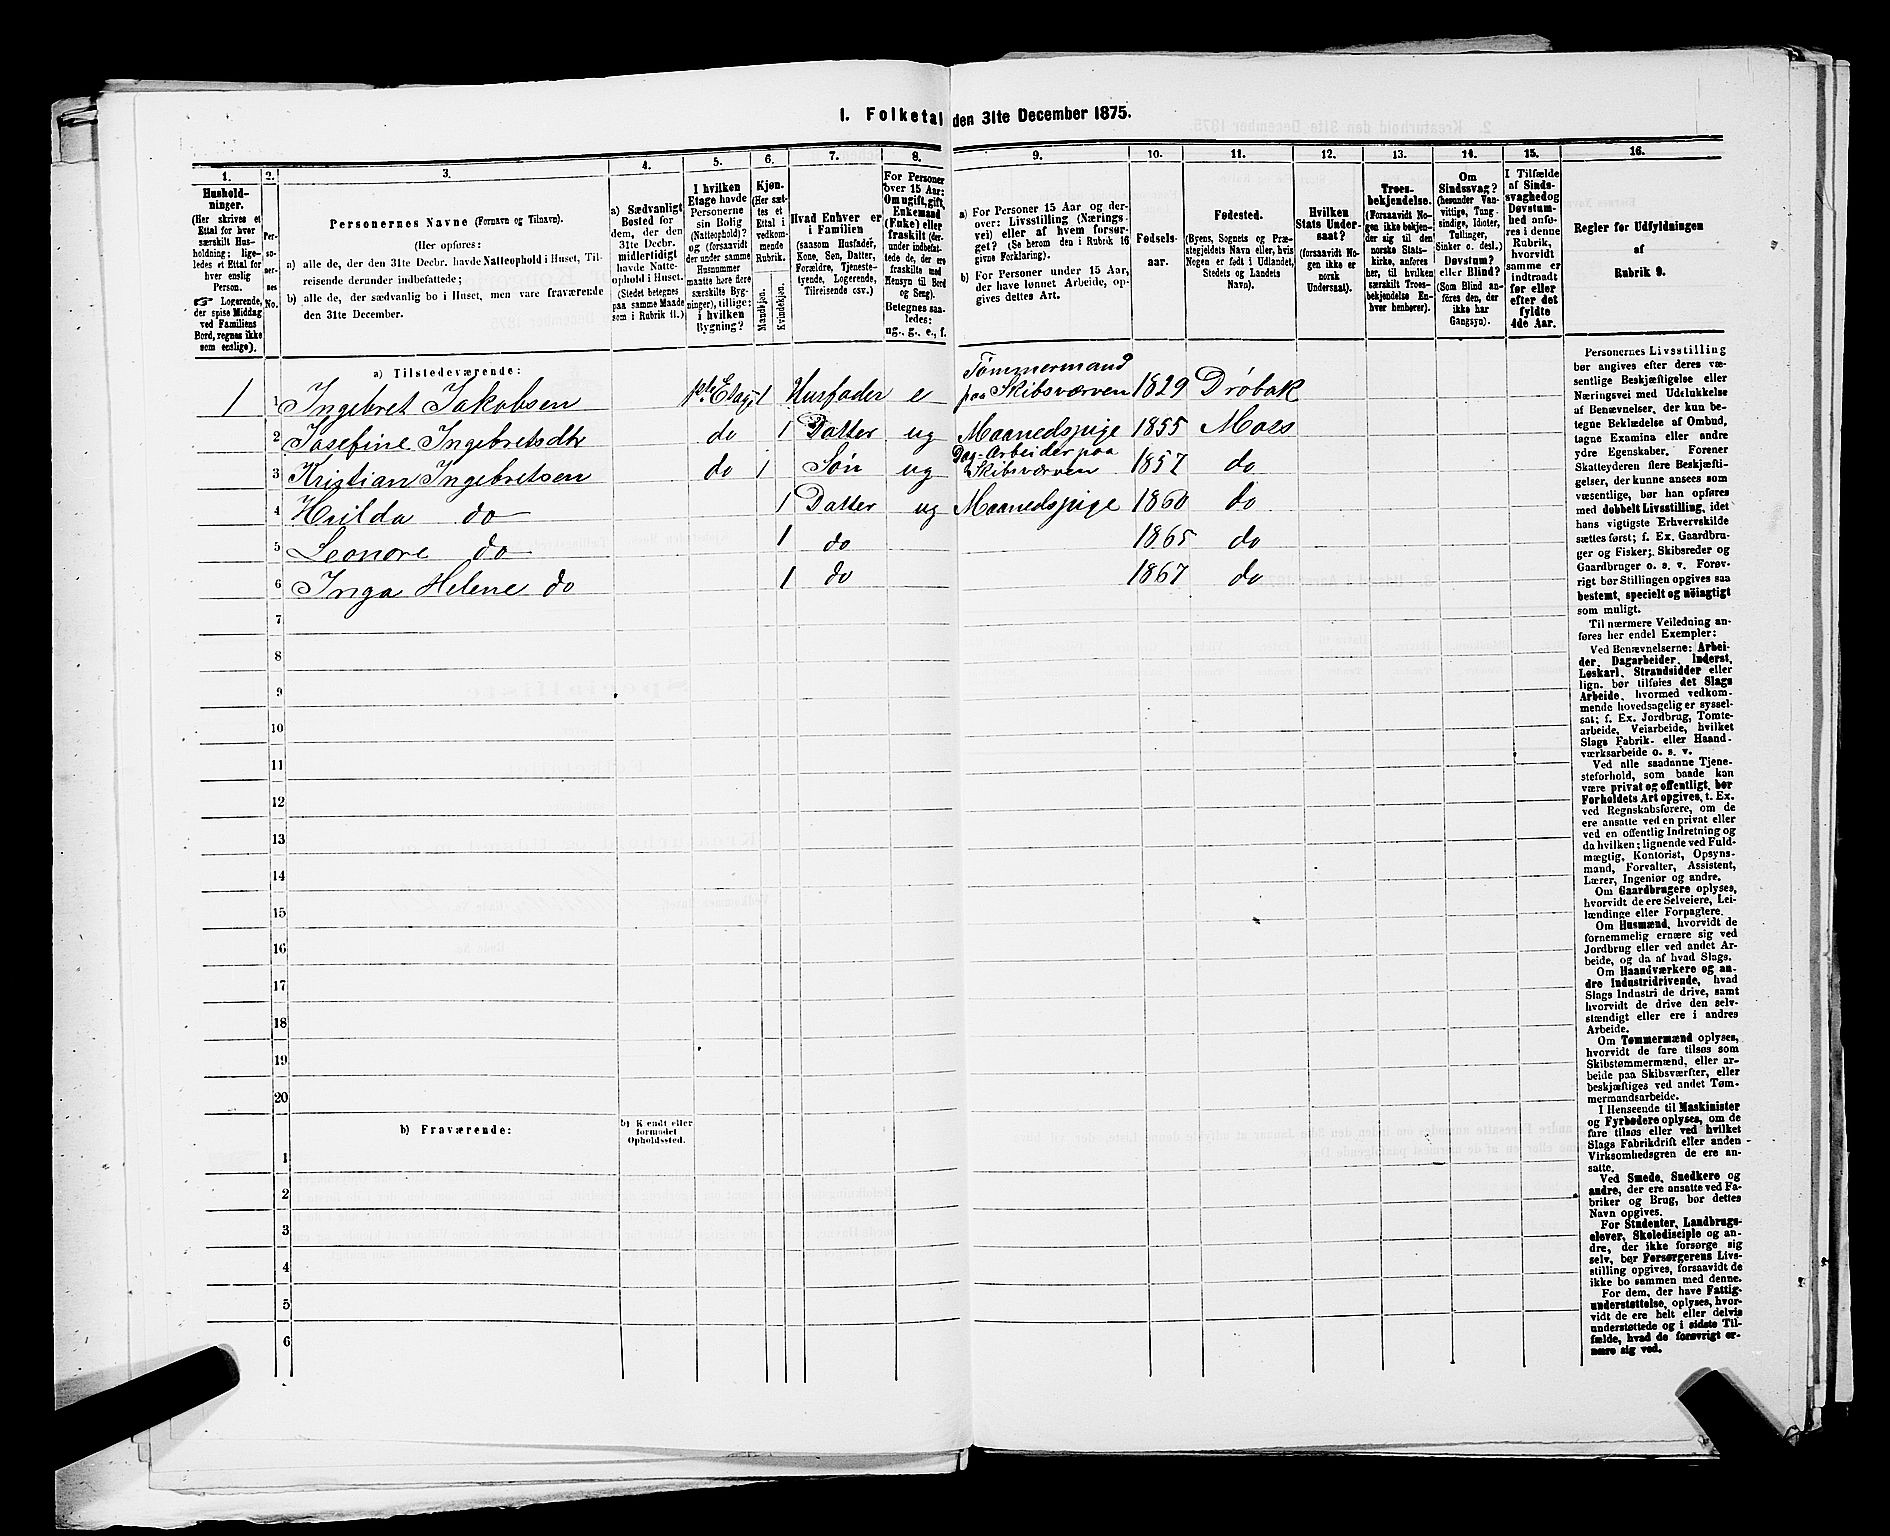 1. Folketal den 31te December 1875.
1.
2.
3.
4.
5.
6.
7.
8.
9.
10.
11.
12.
13.
14.
15.
16.
Hushold-
ninger.
(Her skrives et
Ettal for hver
særskilt Hus-
holdning; lige-
ledes et Ettal for
hver enslig
Person.
☞ Logerende,
der spise Middag
ved Familiens
Bord, regnes ikke
som enslige).
Per-
so-
ner-
nes
No.
Personernes Navne (Fornavn og Tilnavn).
(Her opføres:
a) alle de, der den 31te Decbr. havde Natteophold i Huset, Til-
reisende derunder indbefattede;
b) alle de, der sædvanlig bo i Huset, men vare fraværende
den 31te December.
a) Sædvanligt
Bosted for
dem, der den
31te Decbr.
midlertidigt
havde Natte-
ophold i Huset.
(Stedet betegnes
paa samme Maade
som i Rubrik 11.)
I hvilken
Etage havde
Personerne
sin Bolig
(Natteophold)?
og (forsaavidt
der under samme
Husnummer
maatte høre flere
særskilte Byg-
ninger), tillige:
i hvilken
Bygning?
Kjøn.
(Her sæt-
tes et
Ettal i
vedkom-
mende
Rubrik.
Mandkjøn.
Kvindekjøn.
Hvad Enhver er
i Familien
(saasom Husfader,
Kone, Søn, Datter,
Forældre, Tjeneste-
tyende, Logerende,
Tilreisende osv.)
For Personer
over 15 Aar:
Om ugift, gift,
Enkemand
(Enke) eller
fraskilt (der-
under indbefat-
tede de, der ere
fraskilte med
Hensyn til Bord
og Seng).
Betegnes saa-
ledes:
ug., g., e., f.
a) For Personer 15 Aar og der-
over: Livsstilling (Nærings-
vei) eller af hvem forsør-
get? (Se herom den i Rubrik 16
givne Forklaring).
b) For Personer under 15 Aar,
der have lønnet Arbeide, op-
gives dettes Art.
Fødsels-
aar.
Fødested.
(Byens, Sognets og Præ-
stegjeldets Navn eller, hvis
Nogen er født i Udlandet,
Stedets og Landets
Navn).
Hvilken
Stats Under-
saat?
(forsaavidt No-
gen ikke er
norsk
Undersaat).
Troes-
bekjendelse.
(Forsaavidt No-
gen ikke bekjen-
der sig til den
norske Stats-
kirke, anføres
her, til hvilken
særskilt Troes-
bekjendelse En-
hver henhører).
Om
Sindssvag?
(herunder Van-
vittige, Tung-
sindige, Idioter,
Tullinger,
Sinker o. desl.)
Døvstum?
eller Blind?
(Som Blind an-
føres den, der
ikke har
Gangsyn).
I Tilfælde
af Sinds-
svaghed og
Døvstum-
hed anfø-
res i denne
Rubrik,
hvorvidt
samme er
indtraadt
før eller
efter det
fyldte
4de Aar.
Regler for Udfyldningen
af
Rubrik 9.
a) Tilstedeværende:
1 1 Ingebret Jakobsen 1ste Etage 1 Husfader e Tømmermand
paa Skibsværven 1829 Drøbak
2 Josefine Ingebretsdtr do 1 Datter ug Maanedspige 1855 Moss
3 Kristian Ingebretsen do 1 Søn ug Dag-Arbeider paa
Skibsværven 1857 do
4 Hilda do 1 Datter ug Maanedspige 1860 do
5 Leonore do 1 do 1865 do
6 Inga Helene do 1 do 1867 do
7
8
9
10
11
12
13
14
15
16
17
18
19
20
b) Fraværende:
b) Kjendt eller
formodet
Opholdssted.
1
2
3
4
5
6
Personernes Livsstilling
bør angives efter deres væ-
sentlige Beskjæftigelse eller
Næringsvei med Udelukkelse
af Benævnelser, der kun be-
tegne Beklædelse af Ombud,
tagne Examina eller andre
ydre Egenskaber. Forener
Skatteyderen flere Beskjæfti-
gelser, der kunne ansees som
væsentlige, bør han opføres
med dobbelt Livsstilling, idet
hans vigtigste Erhvervskilde
sættes først; f. Ex. Gaardbru-
ger og Fisker; Skibsreder og
Gaardbruger o. s. v. Forøv-
rigt bør Stillingen opgives saa
bestemt, specielt og nøiagtigt
som muligt.
Til nærmere Veiledning an-
føres her endel Exempler:
Ved Benævnelserne: Arbei-
der, Dagarbeider, Inderst,
Løskarl, Strandsidder eller
lign. bør tilføies det Slags
Arbeide, hvormed vedkom-
mende hovedsagelig er syssel-
sat; f. Ex. Jordbrug, Tomte-
arbeide, Veiarbeide, hvilket
Slags Fabrik- eller Haand-
værksarbeide o. s. v.
Ved alle saadanne Tjene-
steforhold, som baade kan
være privat og offentligt, bør
Forholdets Art opgives, t. Ex.
ved Regnskabsførere, om de
ere ansatte ved en privat eller
ved en offentlig Indretning og
da hvilken; lignende ved Fuld-
mægtig, Kontorist, Opsyns-
mand, Forvalter, Assistent,
Lærer, Ingeniør og andre.
Om Gaardbrugere oplyses,
hvorvidt de ere Selveiere, Lei-
lændinge eller Forpagtere.
Om Husmænd, hvorvidt de
fornemmelig ernære sig ved
Jordbrug eller ved andet Ar-
beide, og da af hvad Slags.
Om Haandværkere og an-
dre Industridrivende, hvad
Slags Industri de drive, samt
hvorvidt de drive den selv-
stændigt eller ere i andres
Arbeide.
Om Tømmermænd oplyses,
hvorvidt de fare tilsøs som
Skibstømmermænd, eller ar-
beide paa Skibsværfter, eller
beskjæftiges ved andet Tøm-
mermandsarbeide.
I Henseende til Maskinister
og Fyrbødere oplyses, om de
fare tilsøs eller ved hvilket
Slags Fabrikdrift eller anden
Virksomhedsgren de ere an-
satte.
Ved Smede, Snedkere og
andre, der ere ansatte ved Fa-
briker og Brug, bør dettes
Navn opgives.
For Studenter, Landbrugs-
elever, Skoledisciple og an-
dre, der ikke forsørge sig
selv, bør Forsørgerens Livs-
stilling opgives, forsaavidt de
ikke bo sammen med denne.
For dem, der have Fattig-
understøttelse, oplyses, hvor-
vidt de ere helt eller delvis
understøttede og i sidste Til-
fælde, hvad de forøvrigt er-
nære sig ved.